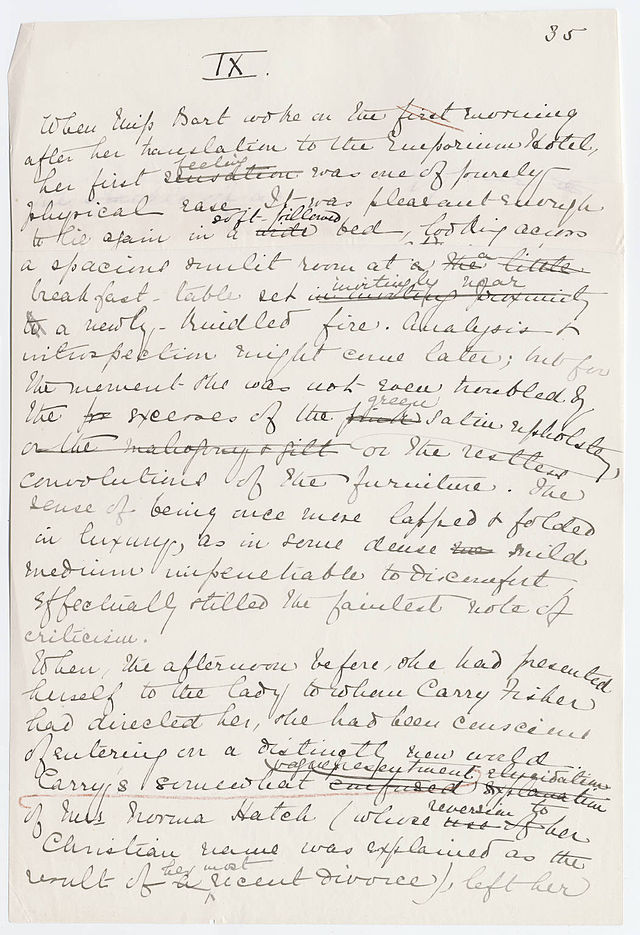 35
IX.
When Miss Bart woke on the first morning
after her translation to the Emporium Hotel,
feeling
her first sensation was one of purely
physical ease. It was pleasant enough
soft-pillowed
to lie again in a wide bed, looking across
a spacious sunlit room at a the a little
invitingly near
breakfast-table set in inviting proximity
to a newly-kindled fire. Analysis &
introspection might come later; but for
the moment she was not even troubled by
green
the excesses of the satin upholstery,
or the mahogany & gilt or the restless
convolutions of the furniture. The
sense of being once more lapped & folded
in luxury, as in some dense mild
medium impenetrable to discomfort,
effectually stilled the faintest note of
criticism.
When, the afternoon before, she had presented
herself to the lady to whom Carry Fisher
had directed her, she had been conscious
of entering on a distinctly new world.
vague presentment elucidation
Carry's somewhat confused explanation
reversion to
of Mrs Norma Hatch (whose use of her
Christian name was explained as the
her most
result of a recent divorce), left her